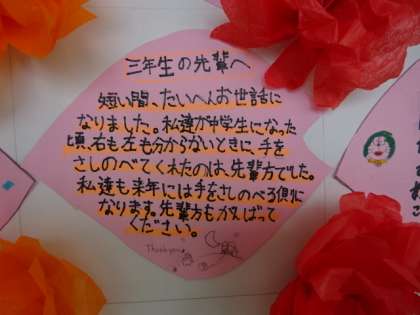 三年生の先輩へ
短い間、たいへんお世話に
なりました。私達が中学生になった
頃、右も左も分からないときに、手を
さしのべてくれたのは、先輩方でした。
私達も来年には手をさしのべる側に
なります。先輩方もがんばって
ください。
Thank you